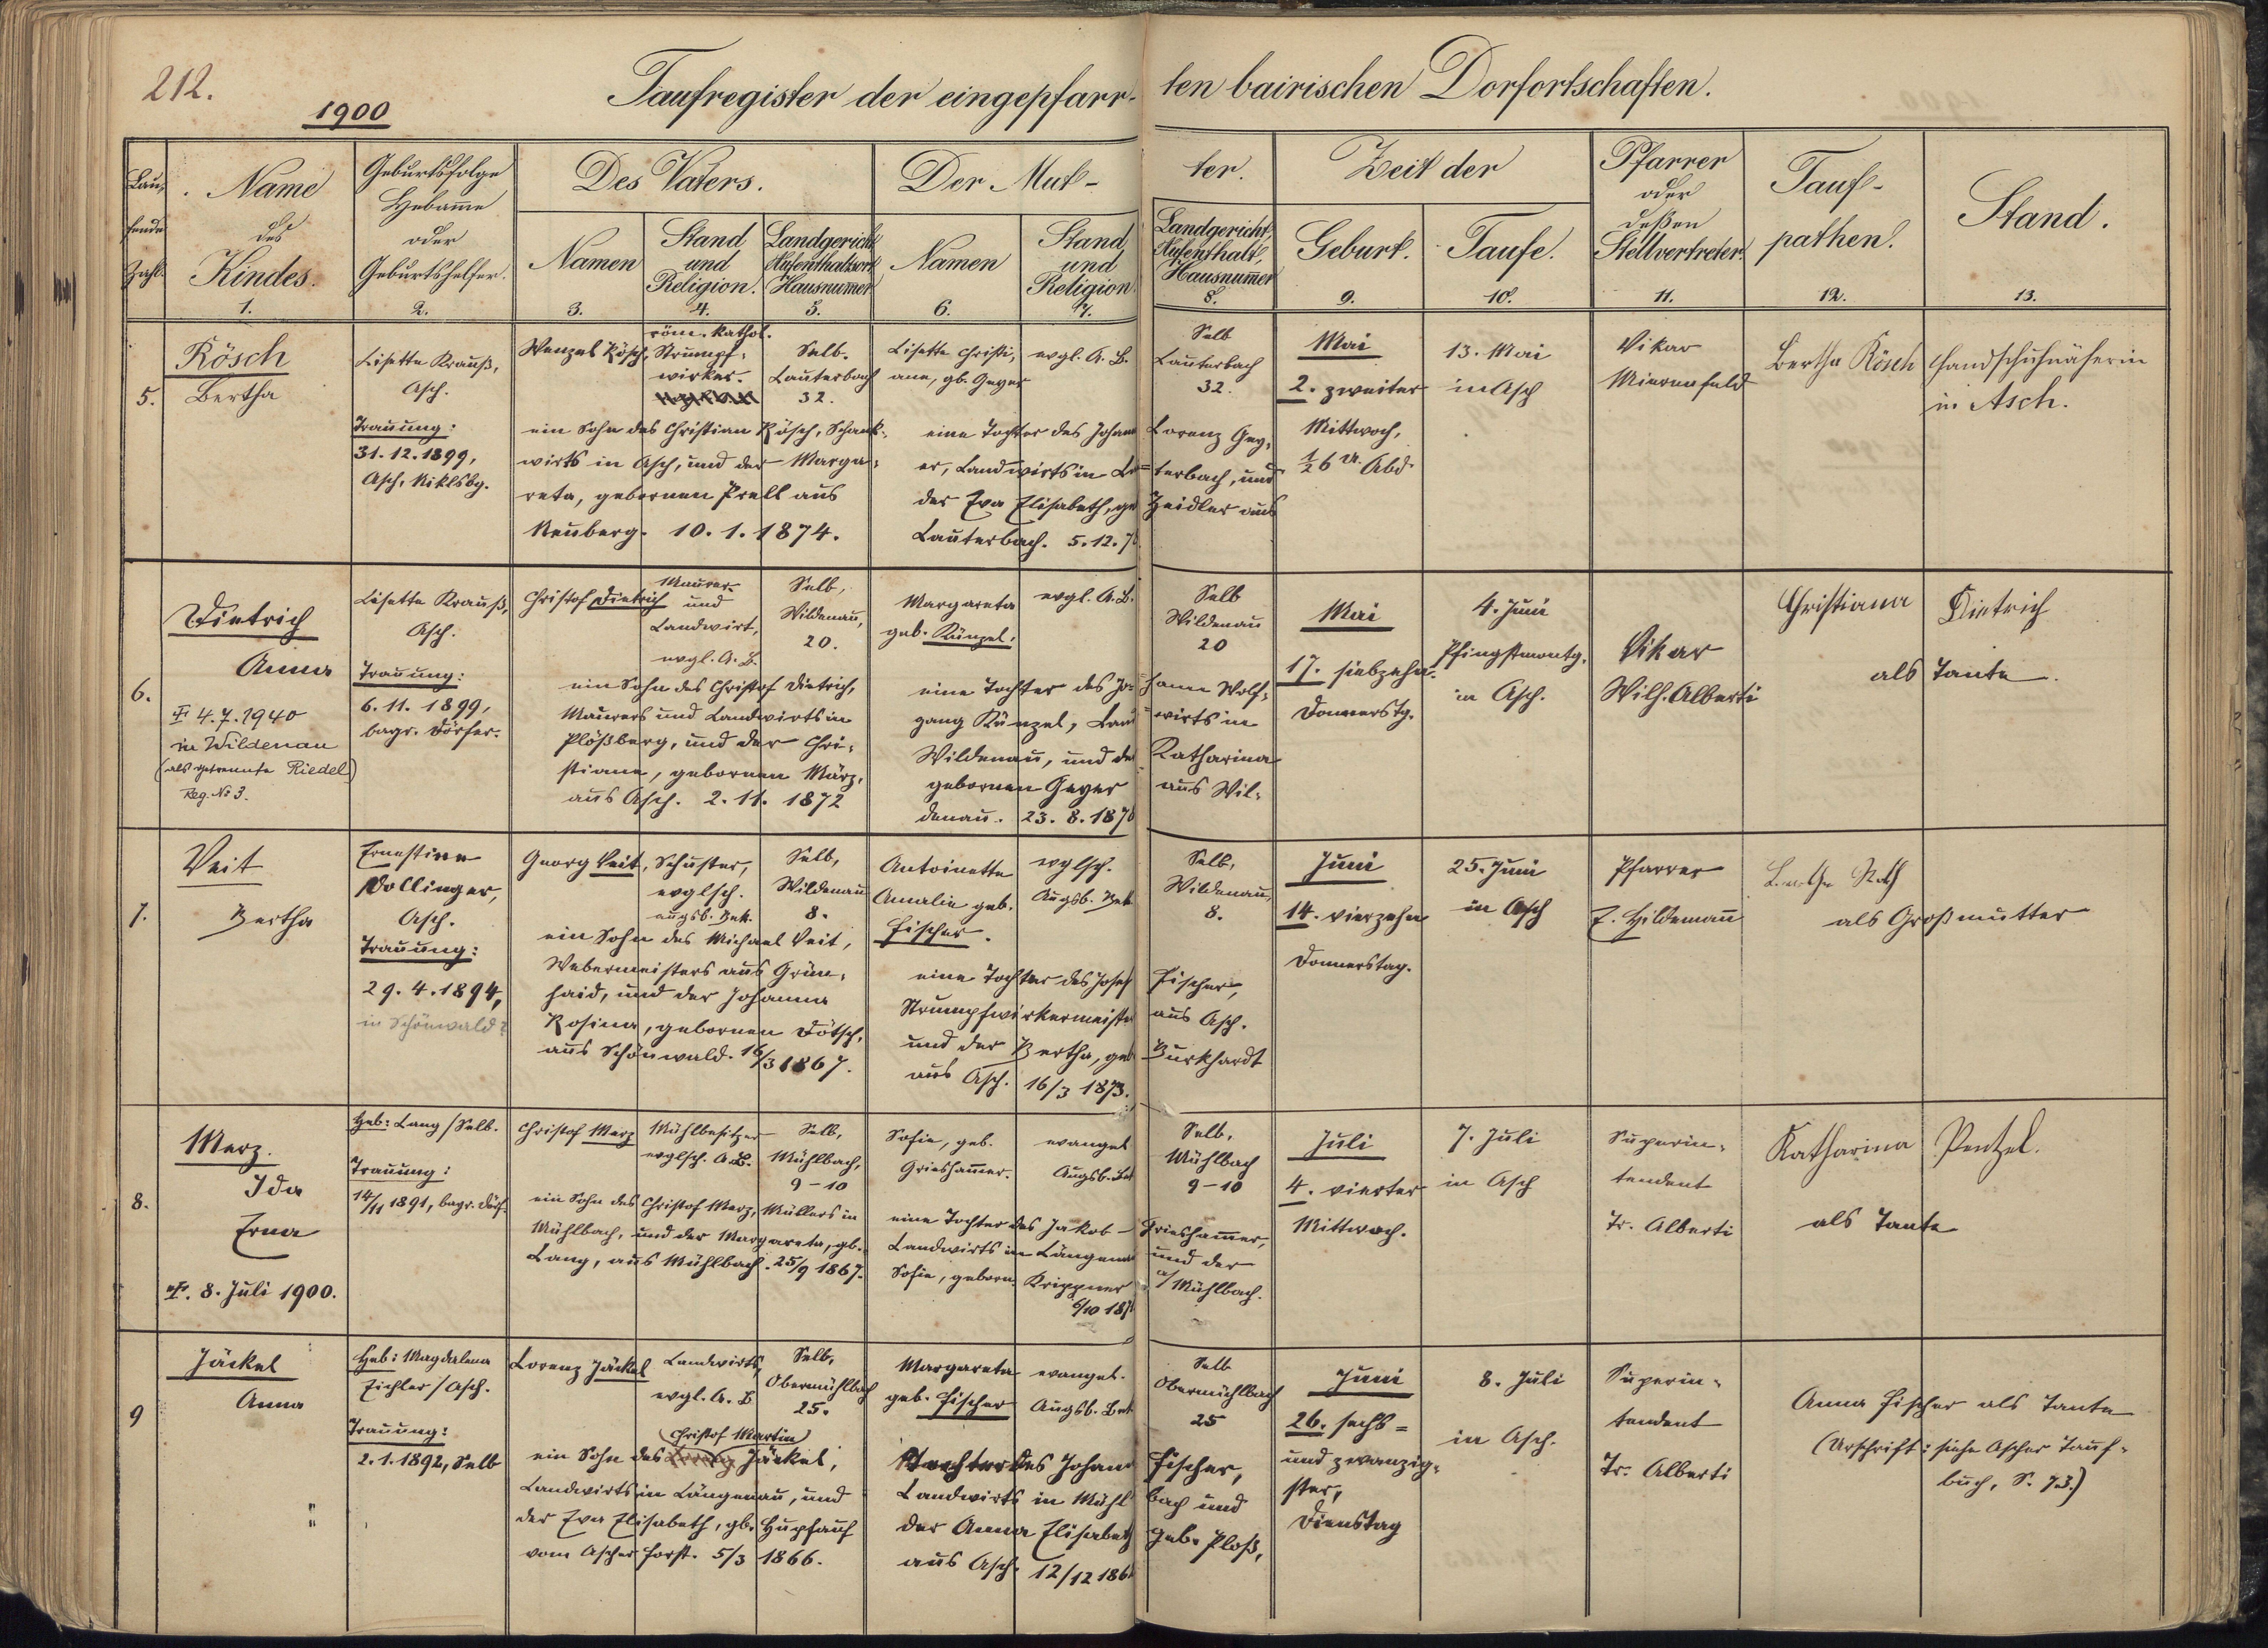 212.
1900
Taufregister der eingepfarr-ten bairischen Dorfortschaften.
Lau-
fende
Zahl.
Name
des
Kindes.
1.
Geburtsfolge
Hebam̅e
oder
Geburtshelfer.
2.
Des Vaters.
Namen
3.
Stand
und
Religion.
4.
Landgericht
Aufenthaltsort
Hausnum̅er
5.
Der Mut-ter.
Namen
6.
Stand
und
Religion.
7.
Landgericht,
Aufenthalt,
Hausnum̅er
8.
Zeit der
Geburt.
9.
Taufe.
10.
Pfarrer
oder
deßen
Stellvertreter.
11.
Tauf-
pathen.
12.
Stand.
13.
5.
Rösch
Bertha
Lisette Krauß,
Asch.
Trauung:
31.12.1899,
Asch, Niklsbg.
Wenzel Rösch,
röm. kathol.
Strumpf-
wirker.
Selb.
Lauterbach
32.
ein Sohn des Christian Rösch, Schank-
wirts in Asch, und der Marga-
reta, gebornen Prell aus
Neuberg. 10.1.1874.
Lisette Christi-
ane, gb. Geyer
evgl. A. B.
Selb
Lauterbach
32.
eine Tochter des Johann Lorenz Gey-
er, Landwirts in Lau-terbach, und
der Eva Elisabeth, ge Zeidler aus
Lauterbach. 5.12.7
Mai
2. zweiter
Mittwoch,
½6 U. Abd.
13. Mai
in Asch
Vikar
Mierenfeld
Bertha Rösch
Handschuhnäherin
in Asch.
6.
Dietrich
Anna
4.7.1940
in Wildenau
(als getrennte Riedel)
Reg. № 3.
Lisette Krauß,
Asch.
Trauung:
6.11.1899,
bayr. Dörfer.
Christof Dietrich
Maurer
und
Landwirt,
evgl. A. B.
Selb,
Wildenau,
20.
ein Sohn des Christof Dietrich,
Maurers und Landwirts in
Plößberg, und der Chri-
stiane, gebornen März,
aus Asch. 2.11.1872
Margareta
geb. Künzel.
evgl. A. B.
Selb
Wildenau
20
eine Tochter des Jo-hann Wolf-
gang Künzel, Land-wirts in
Wildenau, und der Katharina
gebornen Geyer aus Wil-
denau. 23.8.187
Mai
17. siebzehn.
Donnerstg.
4. Juni
Pfingstmontg.
in Asch.
Vikar
Wilh. Alberti
Christiana Dietrich
als Tante.
7.
Veit
Bertha
Ernestine
Dollinger,
Asch.
Trauung:
29.4.1894,
in Schönwald?
Georg Veit,
Schuster,
evglsch.
augsb. Bek.
Selb,
Wildenau
8.
ein Sohn des Michael Veit,
Webermeisters aus Grün-
haid, und der Johanna
Rosina, gebornen Dötsch,
aus Schönwald. 16/3 1867.
Antoinette
Amalie geb.
Fischer.
evglsch.
Augsb. Bek.
Selb,
Wildenau,
8.
eine Tochter des Josef Fischer,
Strumpfwirkermeisters aus Asch.
und der Bertha, geb Burkhardt
aus Asch. 16/3 1873.
Juni
14. vierzehn
Donnerstag.
25. Juni
in Asch
Pfarrer
E. Hildemann
als Großmutter
8.
Merz.
Ida
Erna
8. Juli 1900.
Heb: Lang / Selb.
Trauung:
14/11 1891, bayr. Dörf.
Christof Merz
Mühlbesitzer
evglsch. A. B.
Selb,
Mühlbach,
9-10
ein Sohn des Christof Merz, Müllers in
Mühlbach, und der Margareta, gb.
Lang, aus Mühlbach. 25/9 1867.
Sofie, geb.
Grieshammer.
evangel
Augsb. Bek
Selb,
Mühlbach
9-10
eine Tochter des Jakob Grieshammer,
Landwirts in Längenau und der
Sofie, geborn. Krippner a/ Mühlbach.
6/10 187
Juli
4. vierter
Mittwoch.
7. Juli
in Asch
Superin-
tendent
Tr. Alberti
Katharina Pentzel.
als Tante
9
Jäckel
Anna
Heb: Magdalena
Eichler / Asch.
Trauung:
2.1.1892, Selb
Lorenz Jäckel
Landwirts,
evgl. A. B
Selb,
Obermühlbach
25.
(Christof Martin)
ein Sohn des Jäckel,
Landwirts in Längenau, und
der Eva Elisabeth, gb. Hupfauf
vom Ascher Forst. 5/3 1866.
Margareta
geb. Fischer
evangel.
Augsb. Bek
Selb
Obermühlbach
25
Tochter des Johann Fischer,
Landwirts in Mühl bach und
der Anna Elisabeth geb. Ploß,
aus Asch. 12/12 186
Juni
26. sechs-
und zwanzig-
ster,
Dienstag
8. Juli
in Asch.
Superin-
tendent
Tr. Alberti
Anna Fischer als Tante
(Urschrift: siehe Ascher Tauf-
buch, S. 73.)